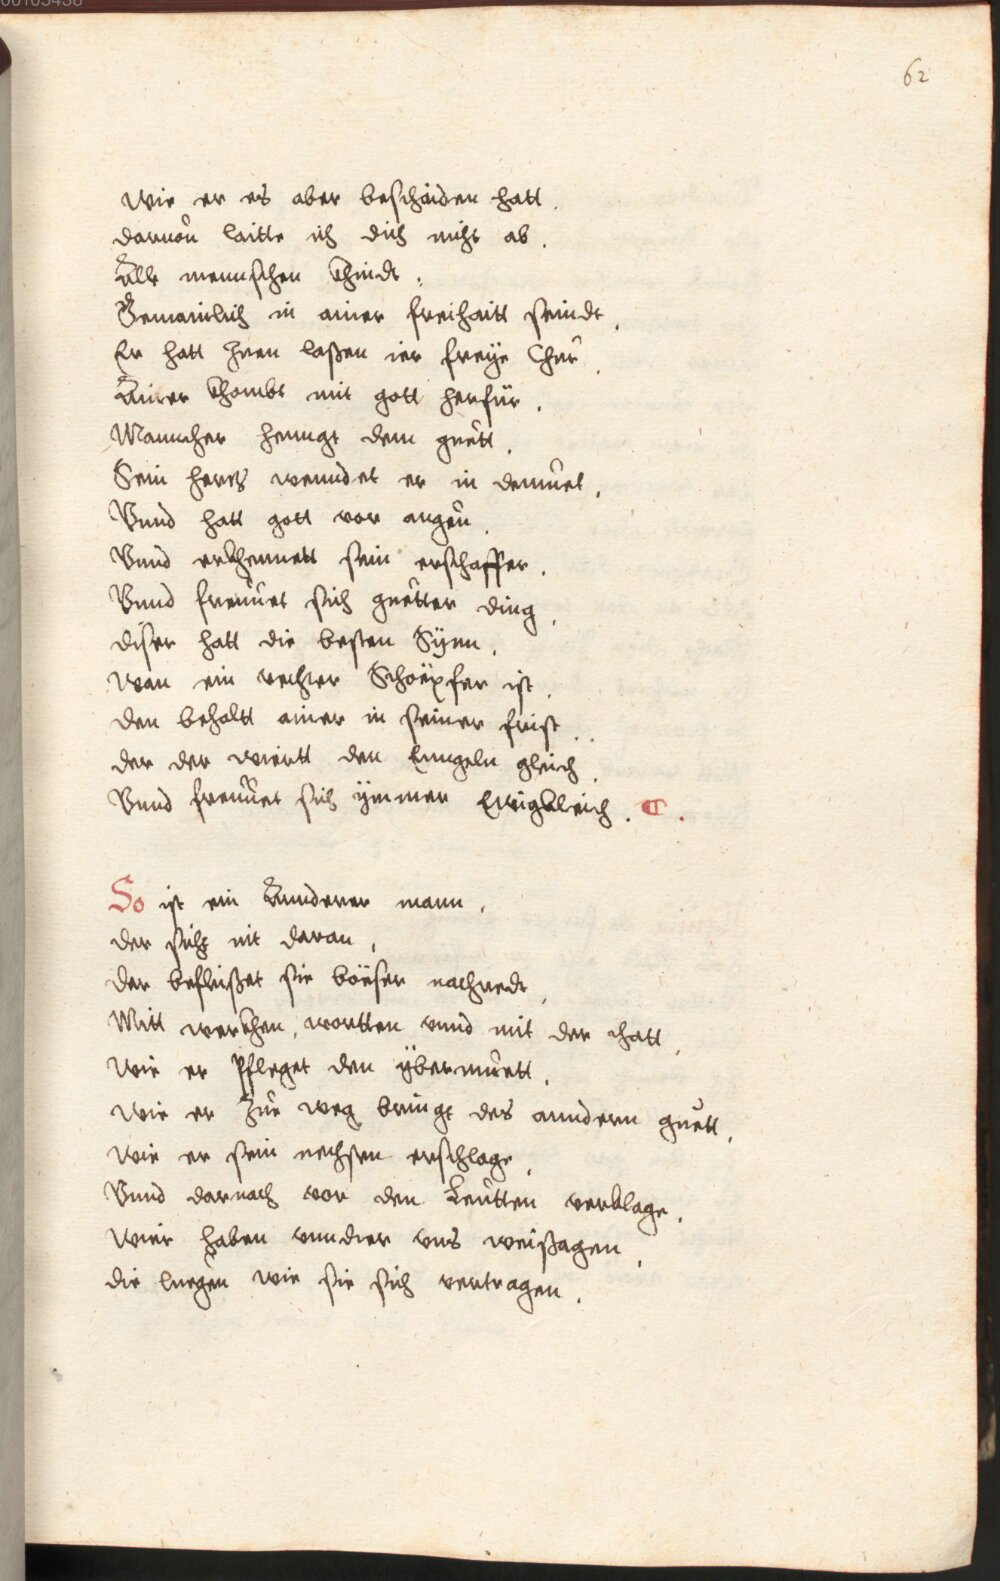 00105438
62
Wie er es aber beschaiden hatt.
darvon laitte ich dich nicht ab.
Alle mennschen khindt.
Gemainlich in ainer freihaitt seindt.
Er hatt Inen laßen ier freÿe Chur.
Ainer khombt mit gott herfür.
Manncher henngt dem guett.
Sein hertz wenndet er in demuet.
Vnnd hatt gott vor augen.
Vnnd erkhennett sein erschaffer.
Vnnd freuuet sich guetter ding.
diser hatt die besten Sÿnn.
Wan ein rechter Schoëpfer ist.
den behaltt ainer in seiner frist.
der der wiertt den Enngeln gleich.
Vnnd freuuet sich ÿmmer Ewigkleich.
So ist ein Annderer mann.
der sicht nit daran.
der befleißet sie boëser nachredt.
Mitt werkhen, wortten vnnd mit der thatt.
Wie er Pfleget den ÿbermuett.
Wie er Zue weg bringt des anndern guett.
Wie er sein nechsten erschlage.
Vnnd darnach vor den Leutten verklage.
Wier haben vnndter vns weißagen.
die luegen wie sie sich vertragen.